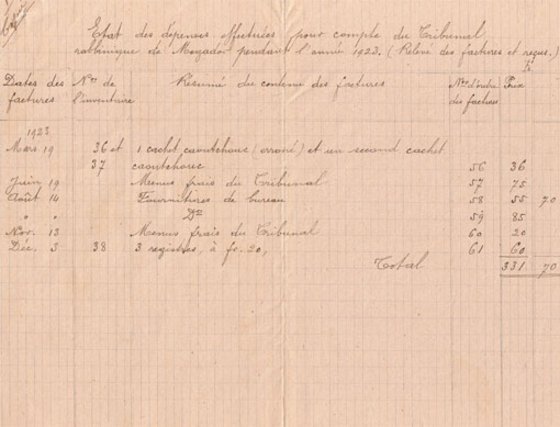 Copie
Etat des dépenses effectuées pour compte du Tribunal
rabbinique de Mogador pendant l'année 1923. (Relevé des factures et reçus.)
Dates des factures Nos de l'inventaire Résumé du contenu des factures Nos d'ordre des factures Prix Fs
1923
Mars 19 36 et 1 cachet caoutchouc (erroné) et un second cachet
37 caoutchouc 56 36
Juin 19 Menus frais du Tribunal 57 75
Août 14 Fournitures de bureau 58 55 70
" " Do 59 85
Nov. 13 Menus frais du Tribunal 60 20
Déc. 3 38 3 registres, à fc. 20, 61 60
Total 331 70